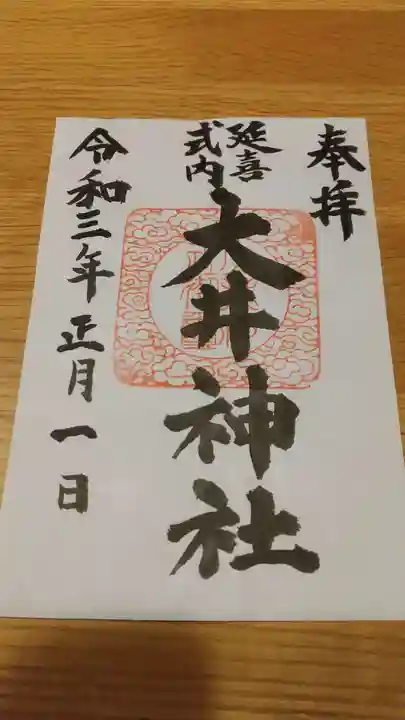 奉拝
延喜
式内
大井神社
令和三年正月一日